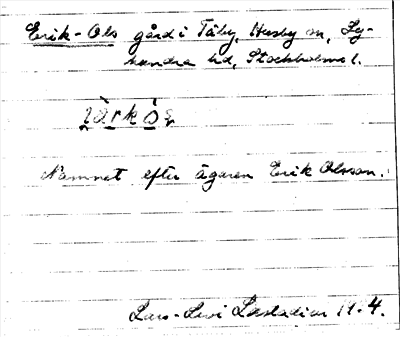 Erik-Ols gård i Täby, Husby m, Ly-
hundra hd, Stockholms l.
Namnet efter ägaren Erik Olsson.
Lars-Levi Læstadius 19.4.